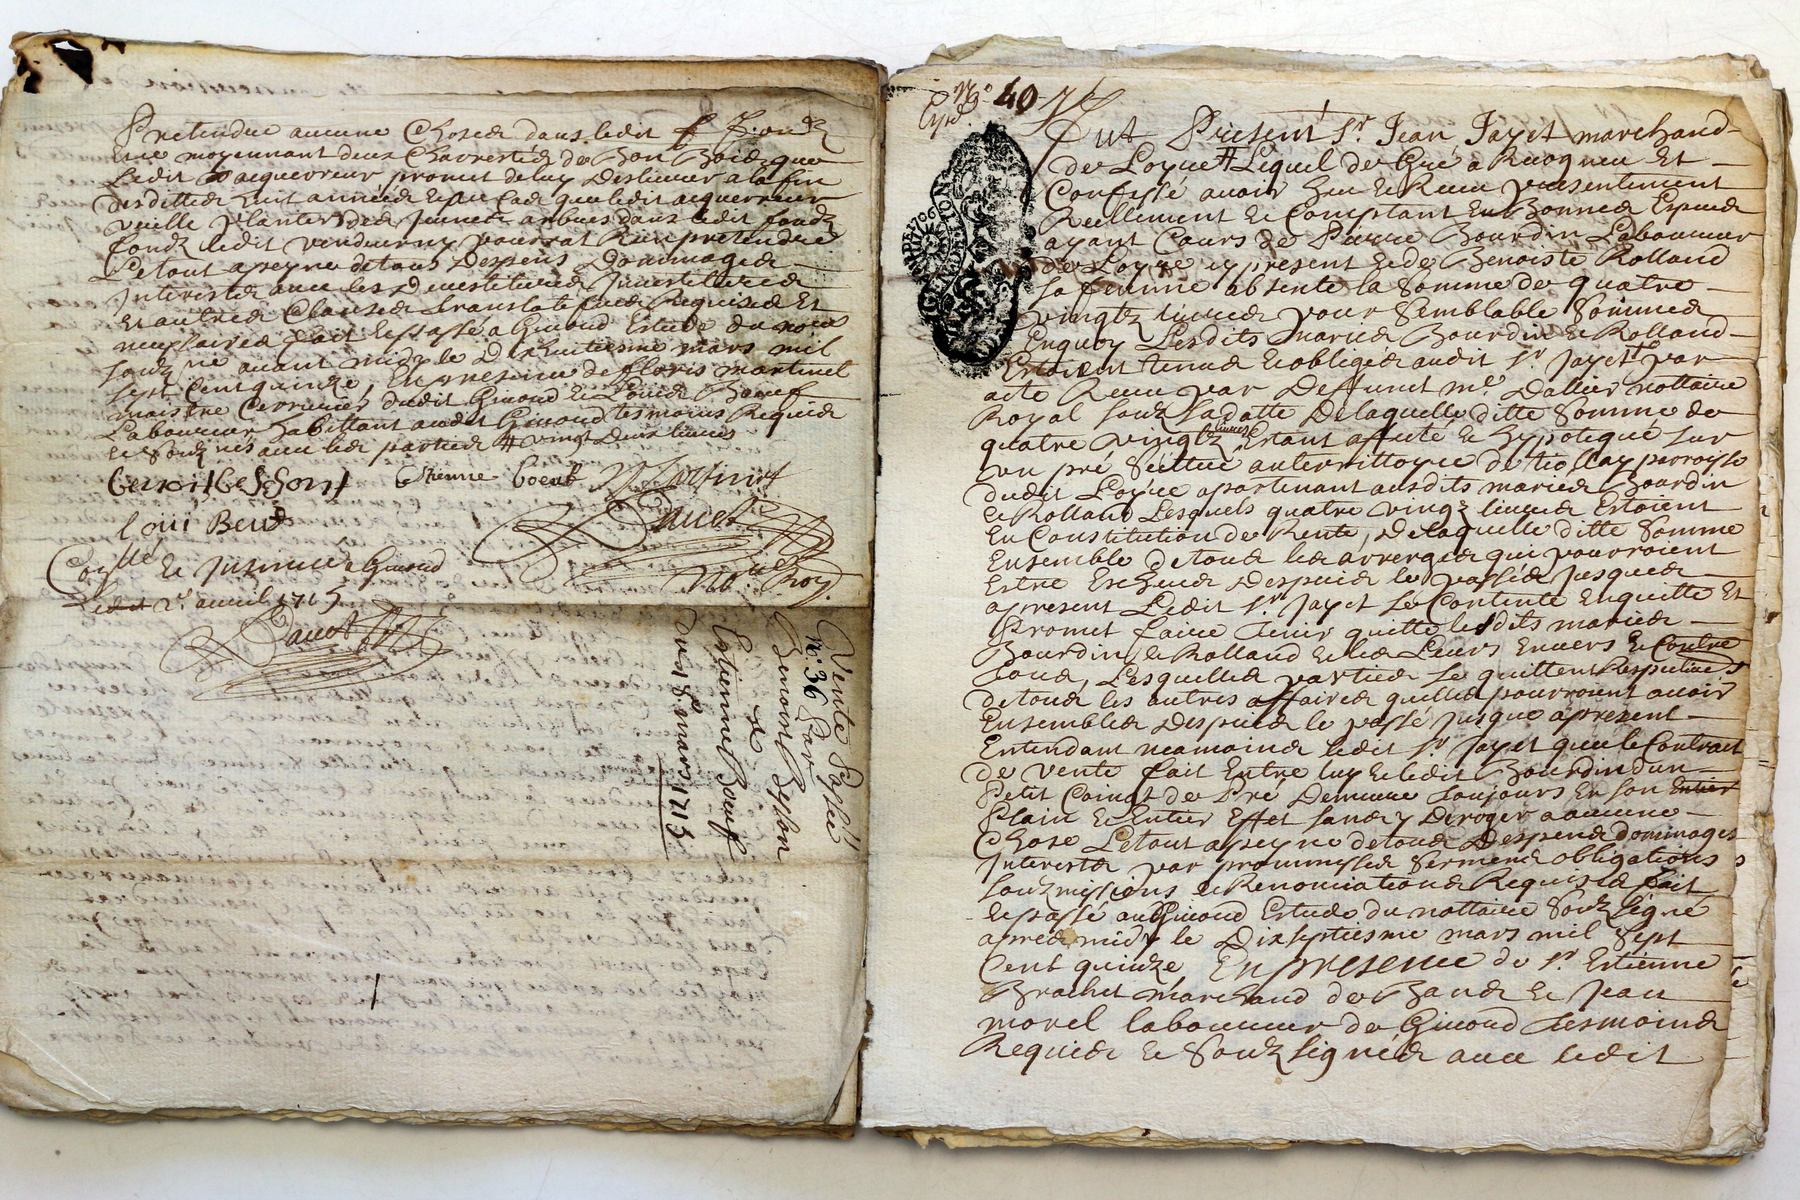 Pretendue aucune Chose dans ledit
moyennant deux Charrestées de Bon Bois que
Ledit acquerreur promet de luy Deslivrer a la fin
desdittes huit années et au Cas que ledit acquerreur
vueille planter des Jeunes arbres dans ledit fondz
ledit vendeur ny pourrat Rien pretendre
Le tout a peyne de tous Despens Dommages
Interestz avec les Devestitures Investitures
Et autres Clauses translatifves Requises Et
necessaires fait Et passé a Givord Estude du notte
soubzné avant midy le Dixhuitiesme mars mil
sept Cent quinze, En presence de floris martinet
maistre Serrurier dudit Givord Et Louis Boeuf
Laboureur habittant audit Givord tesmoins Requis
et Soubznés avec les parties # vingt Deux livres
Benoit Besson Etienne boeuf Martinet
Loui Beuf
Dauet
Contllé Et Insinué a Givord
Ledit 2e avril 1715
Notre Roy.
Dauet
Vente Passée
n: 36 Par
Benoist Besson
a
Estienne Boeuf
du 18 mars 1715
No 40
Exped
Fut Present Sr Jean Jayet marchand
de Loyre # Lequel de Gré a Recogneu Et
Confessé avoir heu et Receu presentement
Reellement et Comptant En Bonnes Espuces
ayant Cours de Pierre Bourdin Laboureur
de Loyre cy present et de Benoiste Rolland
sa femme absente la Somme de quatre
vingtz livres pour Semblable Somme
Enquoy Lesdits mariés Bourdin et Rolland
Estoient tenus et obligés audit Sr Jayet par
acte Receu par Deffunct me Dallier nottaire
Royal soubz sa datte De laquelle ditte Somme de
quatre vingtz livres Estant affecté et hypotequé sur
un pré Scittué au territtoyre de paroisse
dudit Loyre apartenant ausdits mariés Bourdin
et Rolland Lesquels quatre vingz livres Estoient
En Constitution de Rente, De laquelle ditte Somme
Ensemble de tous les arrerges qui pourroient
Estre Escheus Despuis le passé Jusques
apresent Ledit Sr Jayet Se Contente Enquitte Et
Promet faire tenir quitte lesdits mariés
Bourdin et Rolland et les Leurs Envers et Contre
tous, Lesquelles parties Se quittent Respectivemt
de tous les autres affaires quelles pourroient avoir
Ensembles Despuis le passé Jusque apresent
Entendant neamoins ledit Sr Jayet que le Contract
de Vente fait Entre luy et ledit Bourdin dun
Petit Coingt de Pré Demeure tousjours En son Entier
Plain et Entier Effet sans y Deroger a aucune
Chose Le tout a peyne de tous Despens dommages
Interestz par prommesses Serments obligations
soubzmissions et Renonciations Requises fait
Et passé audit Givord Estude du nottaire Soubz signé
apres midy le Dixseptiesme mars mil Sept
Cent quinze En presence de Sr Estienne
Brachet marchand de Bans et Jean
morel laboureur de Givord tesmoins
Requis et Soubz signés avec ledit